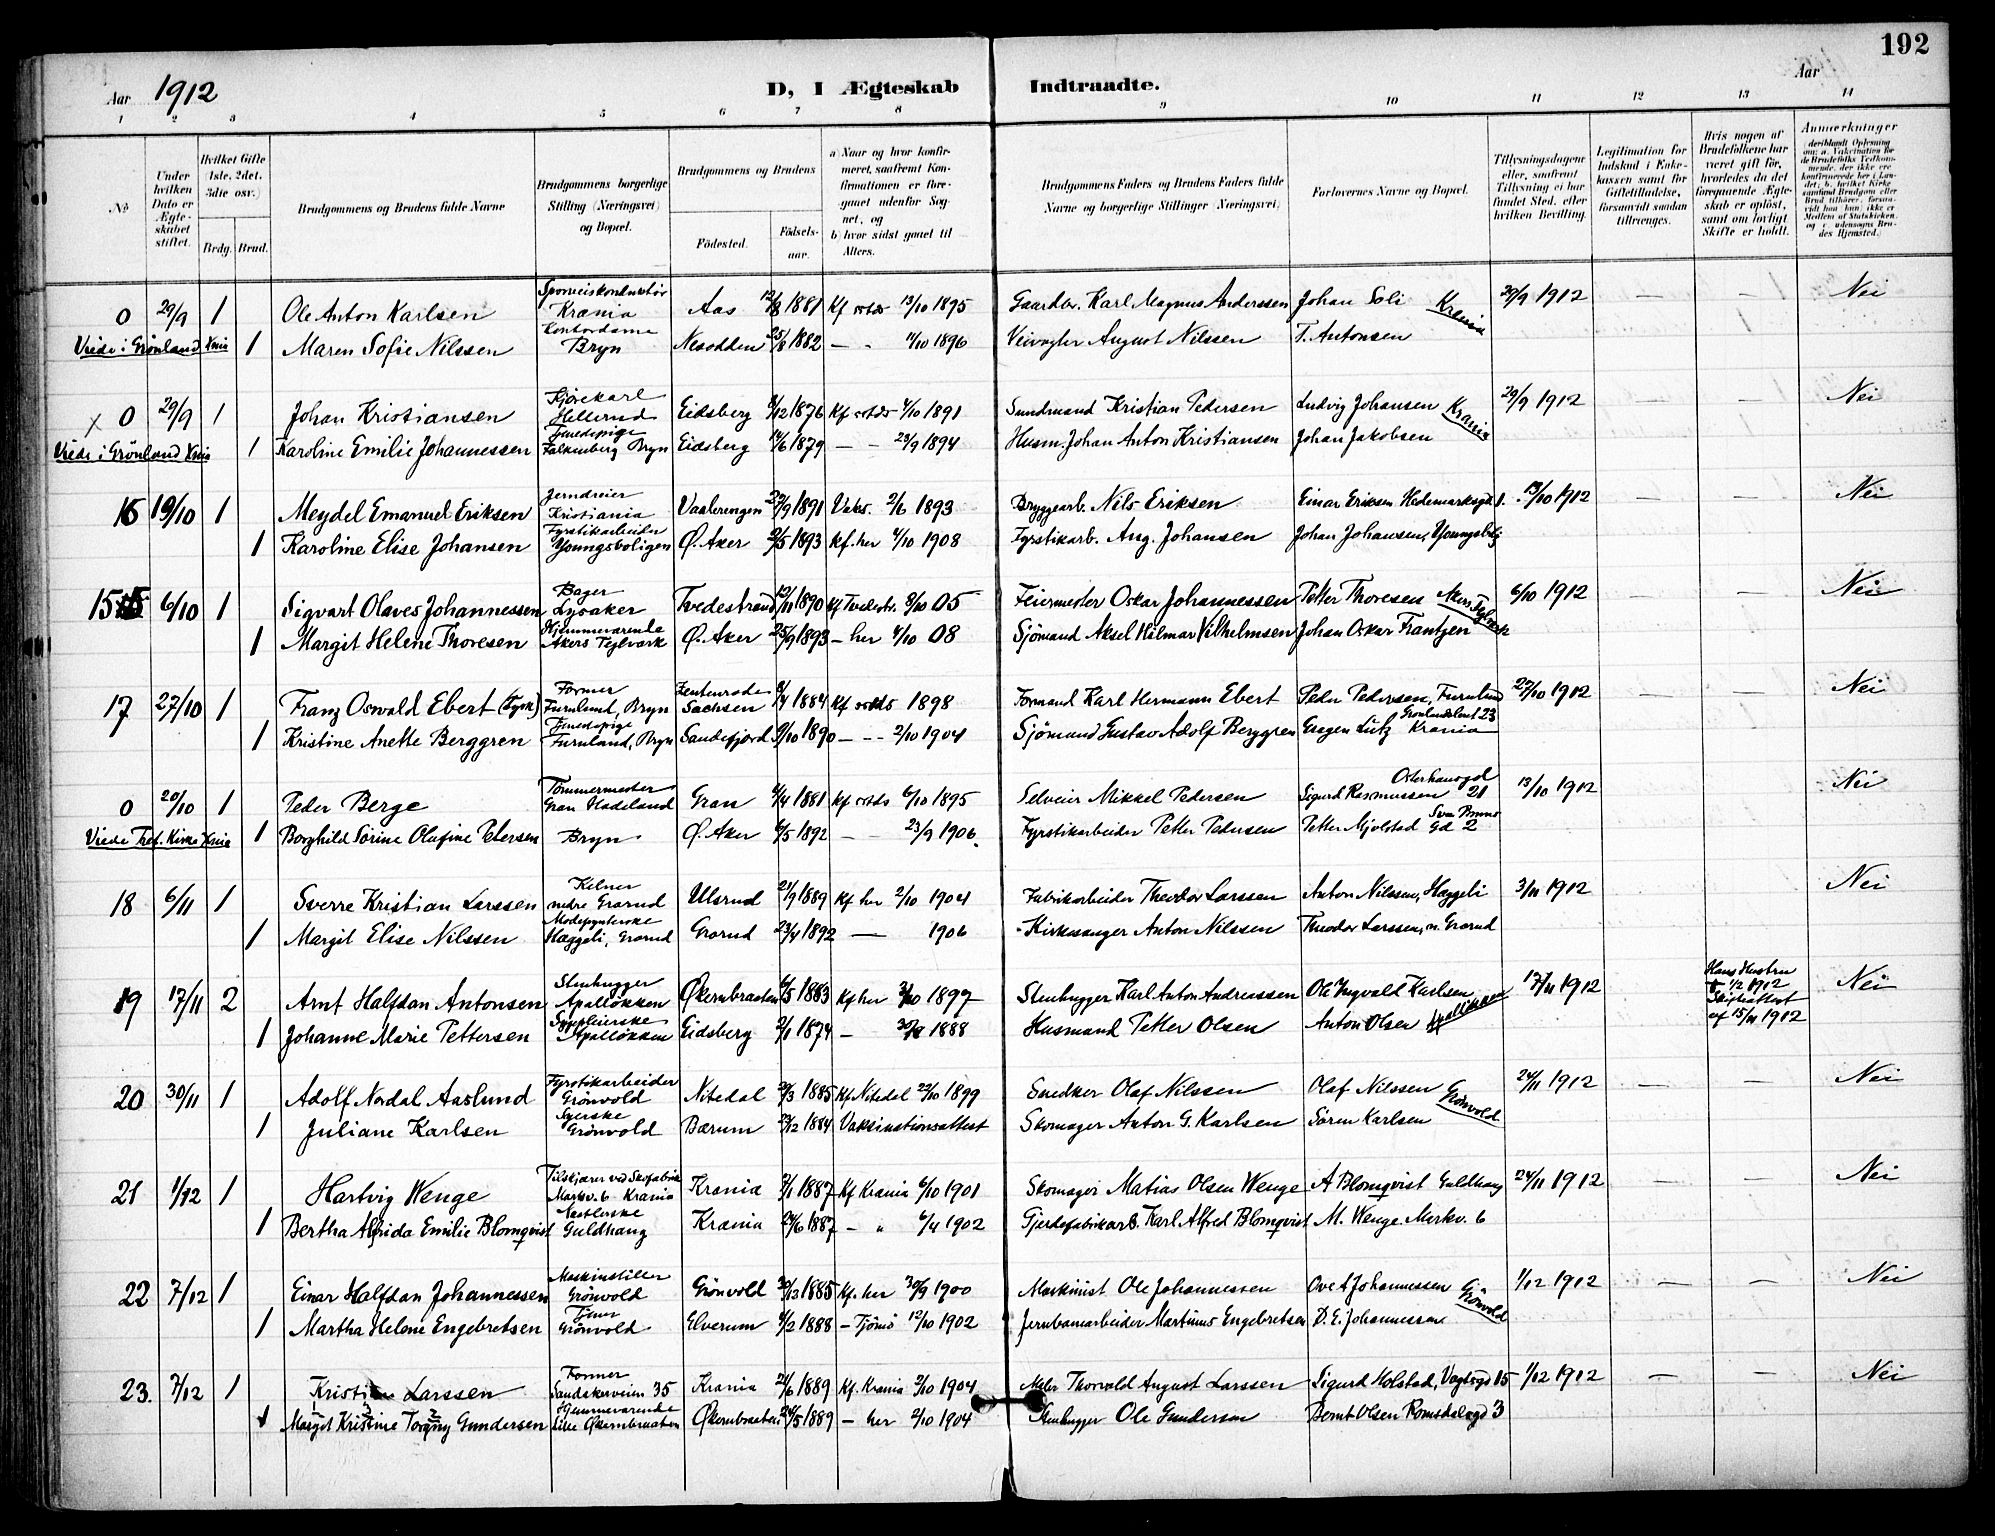 192
Aar 1912
D, I Ægteskab Indtraadte.
Aar
1 2 3 4 5 6 7 8 9 10 11 12 13 14
No
Under hvilken Dato er Ægteskabet stiftet.
Hvilket Gifte (1ste, 2det, 3die osv.)
Brdg. Brud.
Brudgommens og Brudens fulde Navne
Brudgommens borgerlige Stilling (Næringsvei) og Bopæl.
Brudgommens og Brudens
Födested. Födselsaar.
a) Naar og hvor konfirmeret, saafremt Konfirmationen er foregaaet udenfor Sognet, og
b) hvor sidst gaaet til Alters.
Brudgommens Faders og Brudens Faders fulde Navne og borgerlige Stillinger (Næringsvei)
Forlovernes Navne og Bopæl.
Tillysningsdagene eller, saafremt Tillysning ei har fundet Sted, efter hvilken Bevilling.
Legitimation for Indskud i Enkekassen samt for Giftetilladelse, forsaavidt saadan tiltrænges.
Hvis nogen af Brudefolkene har været gift før, hvorledes da det foregaaende Ægteskab er oplöst, samt om lovligt Skifte er holdt.
Anmærkninger
0 29/9 1 Ole Anton Karlsen Sporveiskonduktør Krania Aas 12/8 1881 Kf 13/10 1895 Gaardbr. Karl Magnus Anderssen Johan Soli Krania 29/9 1912 — — Nei
Viede i Grønland Knia 1 Maren Sofie Nilssen Kontordame Bryn Nesodden 25/8 1882 — " 4/10 1896 Veivogter August Nilssen T. Antonsen
x 0 29/9 1 Johan Kristiansen Kjørekarl Hellerud Eidsberg 1876 Kf 4/10 1891 Sundmand Kristian Pedersen Ludvig Johansen Krania 29/9 1912 — — Nei
Viede i Grønland Knia 1 Karoline Emilie Johannessen Tjenestepige Falkenberg Bryn Eidsberg 14/6 1879 — - 23/9 1894 Husm. Johan Anton Kristiansen Johan Jakobsen
16 19/10 1 Meydel Emanuel Eriksen Jerndreier Kristiania Vaalerengen 1891 Vaks. 2/6 1893 Bryggearb. Nils Eriksen Einar Eriksen Hedemarksgd 1. 13/10 1912 — — Nei
1 Karoline Elise Johansen Fyrstikarbeider Youngsboligen Ø. Aker 2/5 1893 Kf. her 4/10 1908 Fyrstikarb. Aug. Johansen Johan Johansen, Youngsblg
15 6/10 1 Sigvart Olaves Johannessen Bager Lysaker Tvedestrand 1890 Kf Tvedestr. 8/10 05 Feiermester Oskar Johannessen Petter Thoresen Akers Teglverk 6/10 1912 — — Nei
1 Margit Helene Thoresen Hjemmeværende Akers Teglværk Ø. Aker 25/9 1893 — her 4/10 08 Sjömand Aksel Hilmar Vilhelmsen Johan Oskar Frantzen
17 27/10 1 Franz Oswald Ebert (Tysk) Former Furulund, Bryn Zeulenroda Sachsen 1884 Kf 1898 Formand Karl Hermann Ebert Peder Pedersen, Furulund 27/10 1912 — — Nei
1 Kristine Anette Berggren Tjenestepige Furulund, Bryn Sandefjord 1890 — -- 2/10 1904 Sjömand Gustav Adolf Berggren Eugen Lutz Grønlandsleret 23 Krania
0 20/10 1 Peder Berge Tømmermester Gran Hadeland Gran 6/4 1881 Kf 6/10 1895 Selveier Mikkel Pedersen Sigurd Rasmussen Osterhausgd 21 13/10 1912 Nei
Viede Tref. Kirke Knia 1 Borghild Sørine Olufine Petersen Bryn Ø. Aker 6/5 1892 — 23/9 1906. Fyrstikarbeider Petter Pedersen Petter Mjølstad Sven Bruns Gd 2
18 6/11 1 Sverre Kristian Larssen Kelner nedre Grorud Ulsrud 21/9 1889 Kf her 2/10 1904 Fabrikarbeider Theodor Larssen Anton Nilssen, Hæggeli 3/11 1912 Nei
1 Margit Elise Nilssen Modepynterske Hæggeli, Grorud Grorud 23/4 1892 — 1906 Kirkesanger Anton Nilssen Theodor Larssen, n. Grorud
19 17/11 2 Arnt Halfdan Antonsen Stenhugger Apalløkken Økernbraaten 6/5 1883 Kf her 1897 Stenhugger Karl Anton Andreassen Ole Ingvald Karlsen Apalløkken 17/11 1912 Hans Hustru † 1/2 1912 Skifteattest af 15/11 1912 Nei
1 Johanne Marie Pettersen Sypleierske Apalløkken Eidsberg 2/1 1874 — 1888 Husmand Petter Olsen Anton Olsen
20 30/11 1 Adolf Nordal Aaslund Fyrstikarbeider Grönvold Nitedal 1885 Kf. Nitedal 22/10 1899 Snedker Olaf Nilssen Olaf Nilssen Grönvold 24/11 1912 — — Nei
1 Juliane Karlsen Syerske Grönvold Bærum 1884 Vaksinationsattest Skomager Anton G. Karlsen Sören Karlsen
21 1/12 1 Hartvig Wenge Tilskjærer ved Skofabrik Markv. 6 Krania Krania 1887 Kf Krania 6/10 1901 Skomager Matias Olsen Wenge A Blomqvist Guldhaug 24/11 1912 — — Nei
1 Bertha Alfrida Emilie Blomqvist Guldhaug Krania 1887 — " 6/4 1902 Gjerdefabrikarb. Karl Alfred Blomqvist M. Wenge. Markv. 6
22 7/12 1 Einar Halfdan Johannessen Maskinstiller Grönvold Grönvold 1885 Kf. her 30/9 1900 Maskinist Ole Johannessen Ove A Johannessen Grönvold 1/12 1912 — — Nei
1 Martha Helene Engebretsen Tjener Grönvold Elverum 1888 — Tjömö 12/10 1902 Jernbanearbeider Martinus Engebretsen D. E. Johannessen
23. 7/12 1 Kristian Larssen Former Sandakerveien 35 Krania 1889 Kf. Krania 2/10 1904 Maler Thorvald August Larssen Sigurd Molstad, Vogtsgd 15 1/12 1912 — — Nei
1 Margit Kristine Torgny Gundersen Hjemmeværende Lille Økernbraaten Økernbraaten 1889 — her 2/10 1904 Stenhugger Ole Gundersen Bernt Olsen Romsdalsgd 3